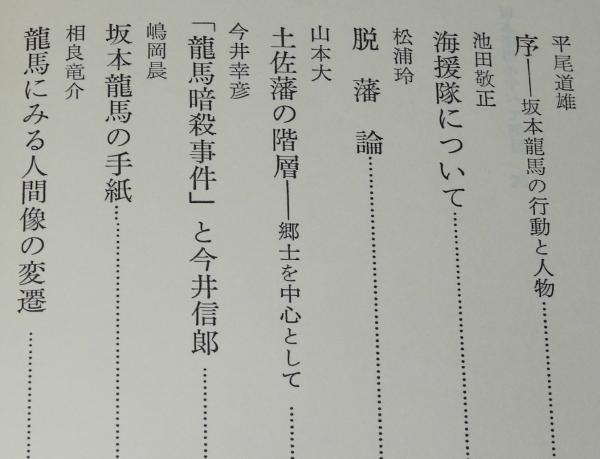 平尾道雄
序——坂本龍馬の行動と人物
池田敬正
海援隊について
松浦玲
脱藩論
山本大
土佐藩の階層——郷士を中心として
今井幸彦
「龍馬暗殺事件」と今井信郎
嶋岡晨
坂本龍馬の手紙
相良竜介
龍馬にみる人間像の変遷